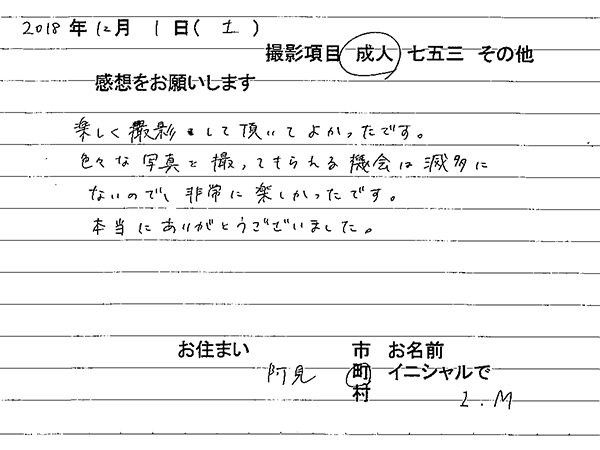 2018年12月1日(土)
撮影項目 成人 七五三 その他
感想をお願いします
楽しく撮影をして頂いてよかったです。
色々な写真を撮ってもらえる機会は滅多に
ないので、非常に楽しかったです。
本当にありがとうございました。
お住まい 市 お名前
阿見 町 イニシャルで
村 I.M